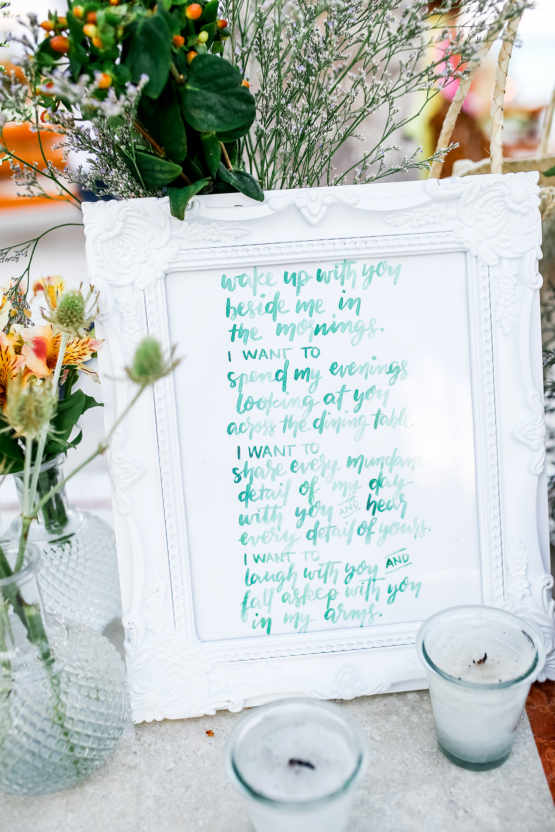 wake up with you
beside me in
the mornings.
I WANT TO
spend my evenings
looking at you
across the dining table.
I WANT TO
share every mundane
detail of my day
with you AND hear
every detail of yours.
I WANT TO
laugh with you AND
fall asleep with you
in my arms.